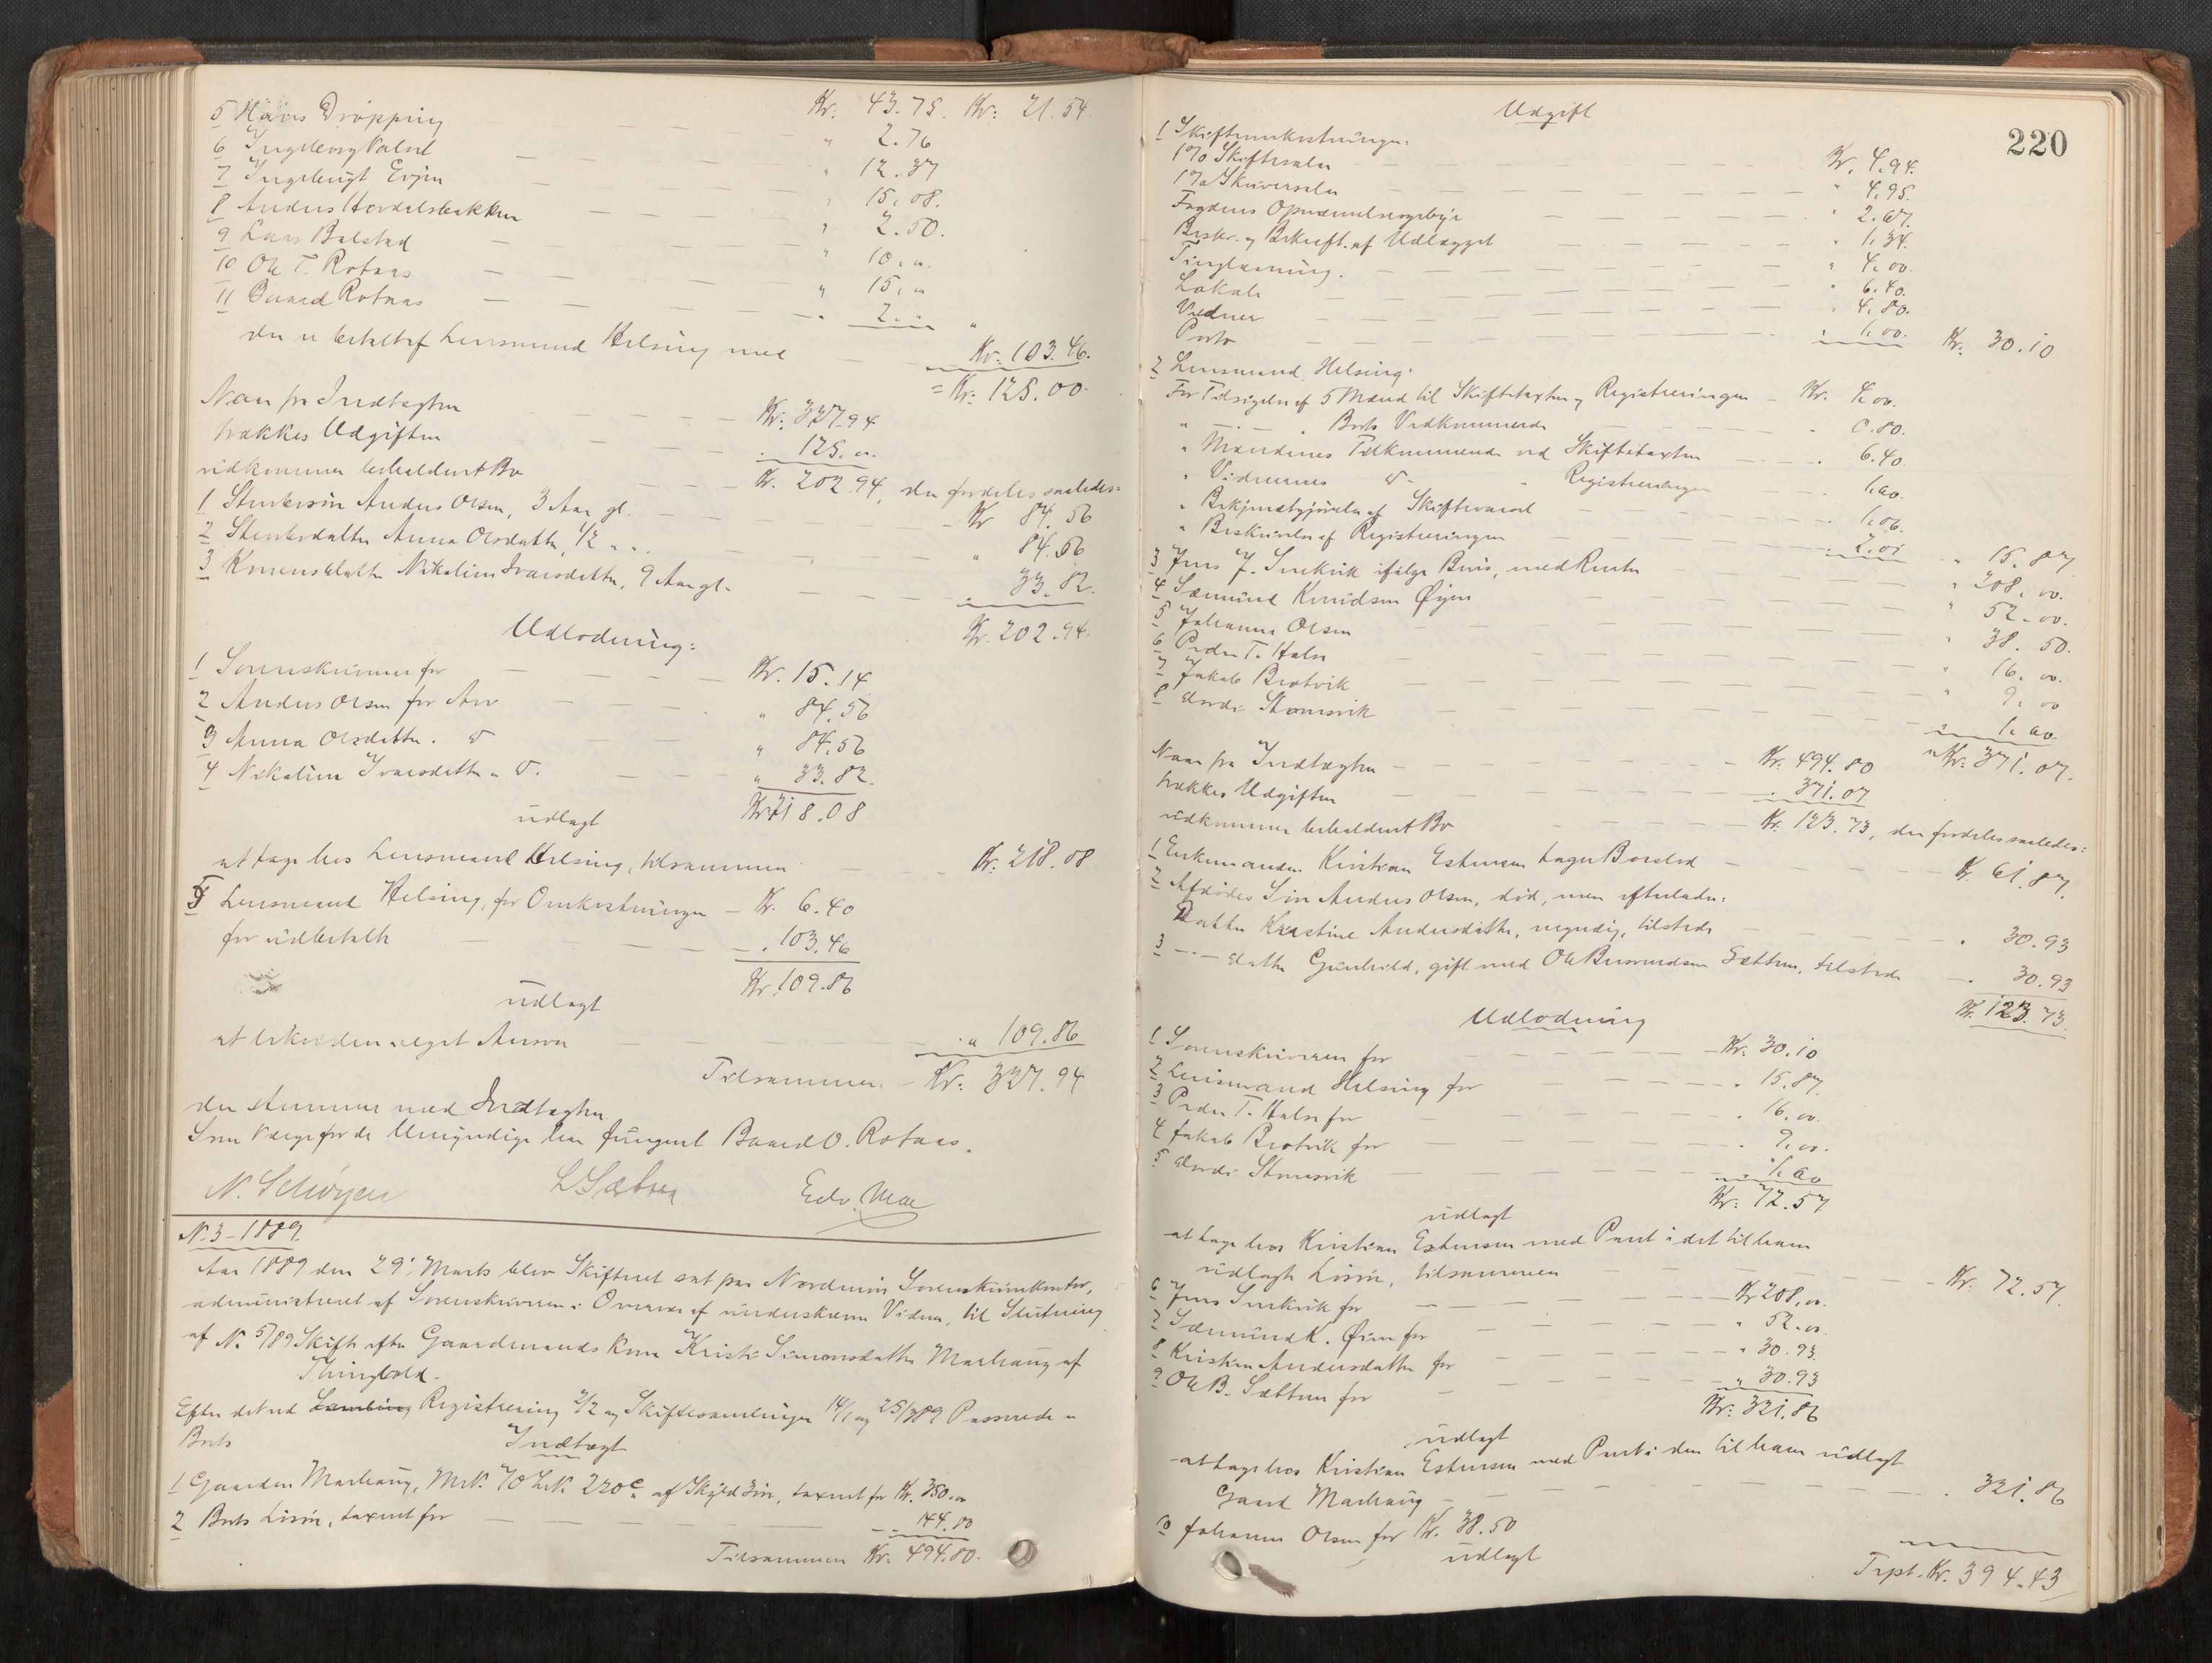 5 Hans Drøpping Kr. 43.75. Kr. 21.54
6 Ingeborg Valset " 2.76
7 Ingebrigt Evjen " 12.37
8 Anders Hovdalsbakken " 15.08.
9 Lars Balstad " 2.50.
10 Ole T. Rotaas " 10. "
11 Baard Rotaas " 15. "
" 2. " "
der er betalt af Lensmand Helsing med Kr. 103.46.
= Kr. 125.00.
Naar fra Indtægten Kr. 327.94
trækkes Udgiften " 125. "
udkommer beholdent Bo Kr. 202.94, der fordeles saaledes:
1 Stenbersøn Anders Olsen, 3 Aar gl. Kr 84.56
2 Anna Olsdatter, 1/2 " " " 84.56
3 Konens Datter Nikoline Ivarsdatter, 9 Aar gl. " 33.82.
Kr. 202.94.
Udlodning:
1 Sorenskriveren for Kr. 15.14
2 Anders Olsen for Arv " 84.56
3 Anna Olsdatter " 84.56
4 Nikoline Ivarsdatter " 33.82.
Kr. 218.08
udlagt
at tage hos Lensmand Helsing, tilsammen Kr. 218.08
5 Lensmand Helsing, for Omkostninger Kr. 6.40
for udbetalt " 103.46
Kr. 109.86
udlagt
" 109.86
Tilsammen Kr. 327.94
der stemmer med Indtægten.
Som Værge for de Umyndige har fungeret Baard O. Rotaas.
N. Schøyen L. Sæther Edv. Moe
N. 3-1889.
Aar 1889 den 29. Marts blev Skifteret sat paa Nordmør Sorenskriverkontor,
administreret af Sorenskriveren i Overvær af underskrevne Vidner, til Slutning
af N. 5/89 Skifte efter Gaardmands Kone Kristi Simonsdatter Marhaug af
Thingvold.
Efter det ved Samling Registrering 2/2 og Skiftesamlinger 14/1 og 25/3 89 Passerede er
Boets
Indtægt
1 Gaarden Marhaug, af Skyld 3 øre, taxeret for Kr. 350. "
2 Boets Løsøre, taxeret for " 144.80
Tilsammen Kr. 494.80.
220
Udgift
1 Skifteomkostninger:
1% Skiftesalær Kr. 4.94.
1% Skriversalær " 4.95.
Fogdens Opnævnelsesgebyr " 2.67.
Beskr. og Bekræft. af Udlægget " 1.34.
Tinglæsning. " 4.00.
Lokale " 6.40.
Vidner " 4.80.
Porto " 1.00. Kr. 30.10
2 Lensmand Helsing:
For Tilsigelse af 5 Mænd til Skiftetaxten og Registreringen Kr. 4.00.
" Boets Vedkommende " 0.80.
" Mændenes Tilkommende ved Skiftetaxten " 6.40
" Vidnernes Registreringen 1.60.
" Bekjendtgjørelse af Skiftevarsel 1.06.
" Beskrivelse af Registreringen " 2.01 " 15.87
3 Jens J. Smevik ifølge Bevis, med Renter " 208.00.
4 Sæmund Knudsen Øyen " 52.00.
5 Johannes Olsen " 38.50.
6 Peder T. Halse " 16.00.
7 Jakob Brøtvik " 9.00
8 Stomsvik " 1.60
Kr. 371.07.
Naar fra Indtægten Kr. 494.80
trækkes Udgiften " 371.07
udkommer beholdent Bo Kr. 123.73, der fordeles saaledes:
1 Enkemanden Kristian Estensen tager Boeslod Kr. 61.87.
2 Afdødes Søn Anders Olsen, død, men efterlader:
Datter Kristine Andersdatter, myndig, tilstede " 30.93
3 Datter Gunhild, gift med Ole Sættem, tilstede " 30.93
Kr. 123.73.
Udlodning
1 Sorenskriveren for Kr. 30.10
2 Lensmand Helsing for " 15.87.
3 Peder T. Halse for " 16.00.
4 Jakob Brøtvik for " 9.00.
5 Stomsvik " 1.60
Kr. 72.57
udlagt
at tage hos Kristian Estensen med Pant i det til ham
udlagte Løsøre, tilsammen Kr. 72.57.
6 Jens Smevik for Kr 208.00.
7 Sæmund K. Øien for " 52.00.
8 Kristine Andersdatter for " 30.93.
9 Ole B. Sættem for " 30.93
Kr. 321.86
udlagt
at tage hos Kristian Estensen med Pant i den til ham udlagt
Gaard Marhaug " 321.86
10 Johannes Olsen for Kr. 38.50
udlagt
Trpt. Kr. 394.43